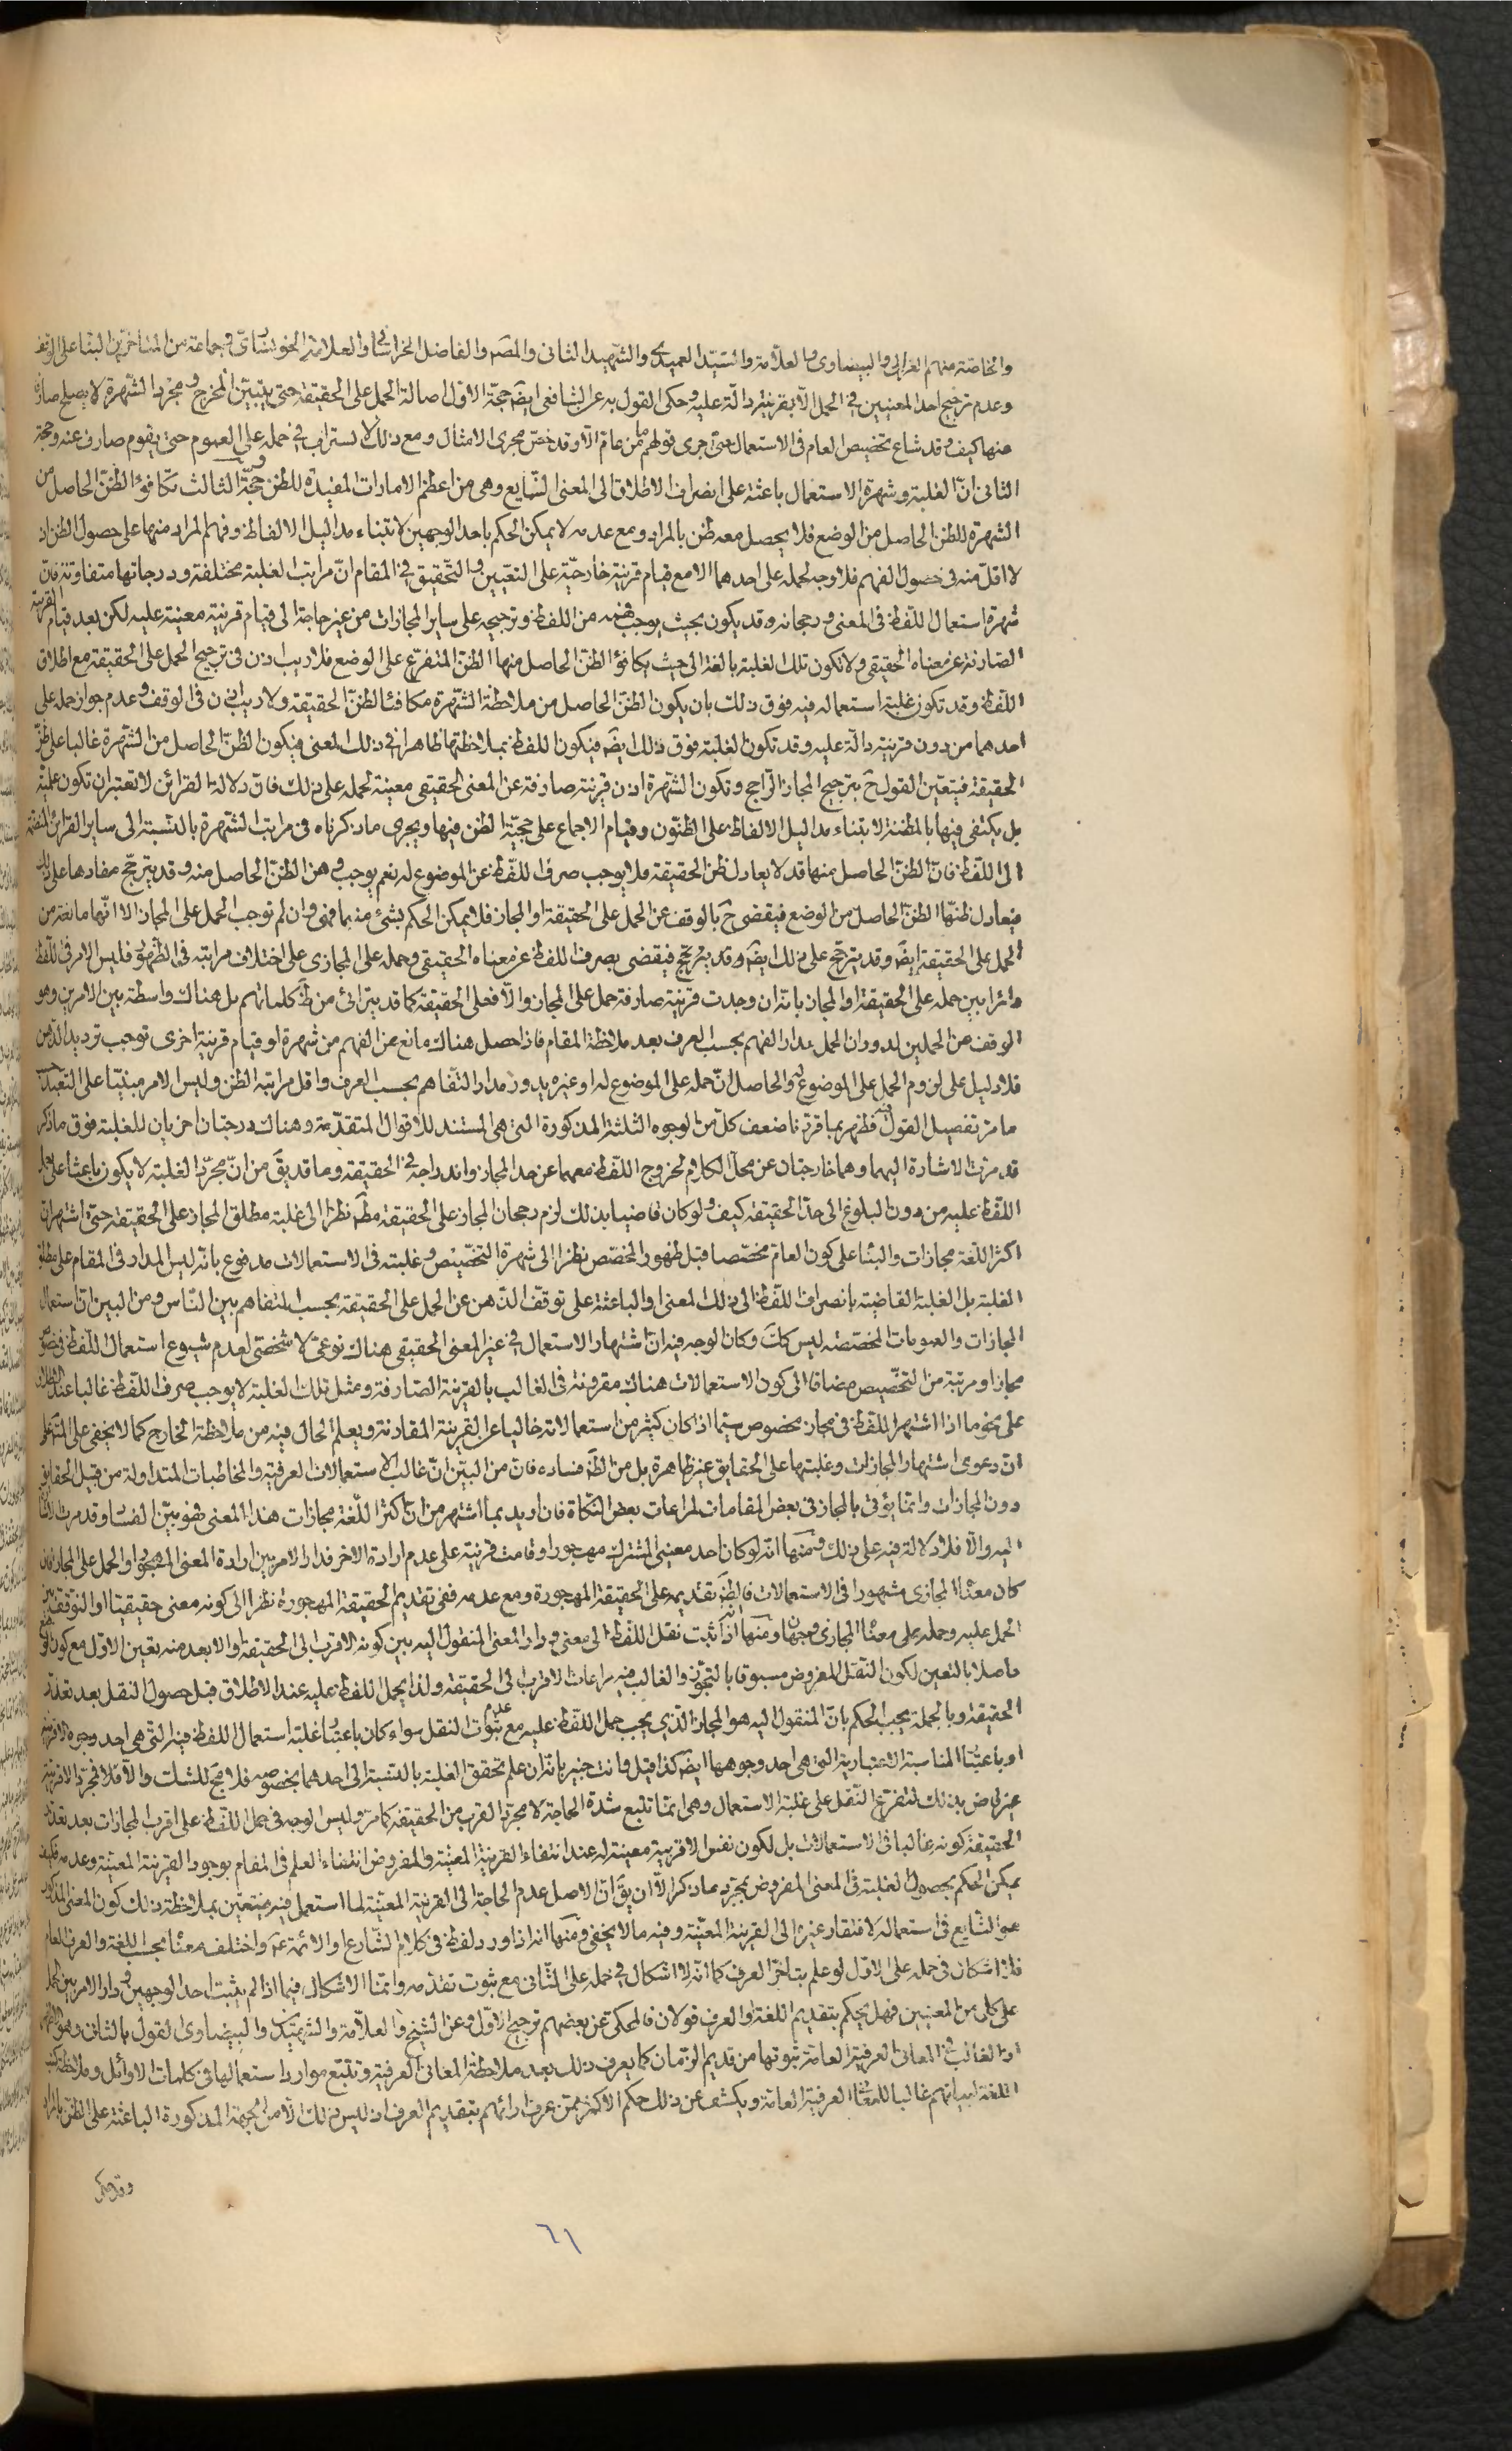 والخاصة منهم الغزالي والبيضاوي والعلامة والسيد العميدي والشهيد الثاني والمصـ والفاضل الخراساني والعلامة الخونساري وجماعة من المتاخرين البناء على الوقف
وعدم ترجيح احد المعنيين في الحمل الا بقرينة دالة عليه وحكى القول به عن الشافعي ايضـ حجة الاول اصالة الحمل على الحقيقة حتى يتبين المخرج ومجرد الشهرة لا يصلح صارفا
عنها كيف وقد شاع تخصيص العام في الاستعمال حتى جرى قولهم ما من عام الا وقد خص مجرى الامثال ومع ذلك لا يستراب في حمله على العموم حتى يقوم صارف عنه وحجة
الثاني ان الغلبة وشهرة الاستعمال باعثة على انصراف الاطلاق الى المعنى الشايع وهي من اعظم الامارات المفيدة للظن وحجة الثالث تكافؤ الظن الحاصل من
الشهرة للظن الحاصل من الوضع فلا يحصل معه ظن بالمراد ومع عدمه لا يمكن الحكم باحد الوجهين لابتناء مداليل الالفاظ وفهم المراد منها على حصول الظن اذ
لا اقل منه في حصول الفهم فلا وجه لحمله على احدهما الا مع قيام قرينة خارجية على التعيين والتحقيق في المقام ان مراتب الغلبة مختلفة ودرجاتها متفاوتة فان
شهرة استعمال اللفظ في المعنى ورجحانه قد يكون بحيث يوجب فهمه من اللفظ وترجيحه على ساير المجازات من غير حاجة الى قيام قرينة معينة عليه لكن بعد قيام القرينة
الصارفة عن معناه الحقيقي ولا تكون تلك الغلبة بالغة الى حيث يكافؤ الظن الحاصل منها الظن المتفرع على الوضع فلا ريب اذن في ترجيح الحمل على الحقيقة مع اطلاق
اللفظ وقد تكون غلبة استعماله فيه فوق ذلك بان يكون الظن الحاصل من ملاحظة الشهرة مكافئا لظن الحقيقة ولا ريب اذن في الوقف وعدم جواز حمله على
احدهما من دون قرينة دالة عليه وقد تكون الغلبة فوق ذلك ايضـ فيكون اللفظ بملاحظتها ظاهرا في ذلك المعنى فيكون الظن الحاصل من الشهرة غالبا على ظن
الحقيقة فيتعين القول ح بترجيح المجاز الراجح وتكون الشهرة اذن قرينة صارفة عن المعنى الحقيقي معينة لحمله على ذلك فان دلالة القرائن لا تعتبر ان تكون علمية
بل يكتفي فيها بالمظنة لابتناء مداليل الالفاظ على الظنون وقيام الاجماع على حجية الظن فيها ويجري ما ذكرناه في مراتب الشهرة بالنسبة الى ساير القرائن المنضمة
الى اللفظ فان الظن الحاصل منها قد لا يعادل ظن الحقيقة فلا يوجب صرف اللفظ عن الموضوع له نعم يوجب وهن الظن الحاصل منه وقد يترجح مفادها على ذلك
فيعادل ظنها الظن الحاصل من الوضع فيقضى ح بالوقف عن الحمل على الحقيقة او المجاز فلا يمكن الحكم بشئ منهما فهي وان لم توجب الحمل على المجاز الا انها مانعة من
الحمل على الحقيقة ايضـ وقد يترجح على ذلك ايضـ وقد يترجح فيقضى بصرف اللفظ عن معناه الحقيقي وحمله على المجازي على اختلاف مراتبه في الظهور فليس الامر في اللفظ
دائرا بين حمله على الحقيقة او المجاز بانه ان وجدت قرينة صارفة حمل على المجاز والا فعلى الحقيقة كما قد يتراءى من ظـ كلماتهم بل هناك واسطة بين الامرين وهو
الوقف عن الحملين لدوران الحمل مدار الفهم بحسب العرف بعد ملاحظة المقام فاذا حصل هناك مانع عن الفهم من شهرة او قيام قرينة اخرى توجب ترديد الذهن
فلا دليل على لزوم الحمل على الموضوع له والحاصل ان حمله على الموضوع له او غيره يدور مدار التفاهم بحسب العرف واقل مراتبه الظن وليس الامر مبنيا على التعبد حسب
ما مر تفصيل القول فيه فظهر بما قررنا ضعف كل من الوجوه الثلثة المذكورة التي هي المستند للاقوال المتقدمة وهناك درجتان اخريان للغلبة فوق ما ذكر
قد مرت الاشارة اليهما وهما خارجتان عن محل الكلام لخروج اللفظ معهما عن حد المجاز واندراجه في الحقيقة وما قد يقـ من ان مجرد الغلبة لا يكون باعثا على حمل
اللفظ عليه من دون البلوغ الى حد الحقيقة كيف ولو كان قاضيا بذلك لزم رجحان المجاز على الحقيقة مطـ نظرا الى غلبة مطلق المجاز على الحقيقة حتى اشتهر ان
اكثر اللغة مجازات والبناء على كون العام مخصصا قبل ظهور المخصص نظرا الى شهرة التخصيص وغلبته في الاستعمالات مدفوع بانه ليس المدار في المقام على مطلق
الغلبة بل الغلبة القاضية بانصراف اللفظ الى ذلك المعنى او الباعثة على توقف الذهن عن الحمل على الحقيقة بحسب المتفاهم بين الناس ومن البين ان استعمال
المجازات والعمومات المخصصة ليس كك وكان الوجه فيه ان اشتهار الاستعمال في غير المعنى الحقيقي هناك نوعي لا شخصي لعدم شيوع استعمال اللفظ في خصوص
مجاز او مرتبة من التخصيص مضافا الى كون الاستعمالات هناك مقرونة في الغالب بالقرينة الصارفة ومثل تلك الغلبة لا يوجب صرف اللفظ غالبا عند الاطلاق
على نحو ما اذا اشتهر اللفظ في مجاز مخصوص سيما اذا كان كثير من استعمالاته خاليا عن القرينة المقارنة ويعلم الحال فيه من ملاحظة الخارج كما لا يخفى على المتامل
ان دعوى اشتهار المجازات وغلبتها على الحقايق غير ظاهرة بل من الظـ فساده فان من البين ان غالب الاستعمالات العرفية والمخاطبات المتداولة من قبيل الحقايق
دون المجازات وانما يؤتى بالمجاز في بعض المقامات لمراعات بعض النكاة فان اريد بما اشتهر من ان اكثر اللغة مجازات هذا المعنى فهو بين الفساد وقد مرت الاشارة
اليه والا فلا دلالة فيه على ذلك ومنها انه لو كان احد معنيي المشترك مهجورا وقامت قرينة على عدم ارادة الاخر فدار الامر بين ارادة المعنى المهجور او الحمل على المجاز فان
كان معناه المجازي مشهورا في الاستعمالات فالظـ تقديمه على الحقيقة المهجورة ومع عدمه ففي تقديم الحقيقة المهجورة نظرا الى كونه معنى حقيقيا او التوقف بين
الحمل عليه وحمله على معناه المجازي وجهان ومنها انه اذا ثبت نقل اللفظ الى معنى ودار المعنى المنقول اليه بين كونه الاقرب الى الحقيقة او الابعد منه تعين الاول مع كون الوضع
حاصلا بالتعين لكون النقل المفروض مسبوقا بالتجوز والغالب فيه مراعات الاقرب الى الحقيقة ولذا يحمل اللفظ عليه عند الاطلاق قبل حصول النقل بعد تعذر
الحقيقة وبالجملة يجب الحكم بان المنقول اليه هو المجاز الذي يجب حمل اللفظ عليه مع عدم ثبوت النقل سواء كان باعتبار غلبة استعمال اللفظ فيه التي هي احد وجوه الاقربية
او باعتبار المناسبة الاعتبارية التي هي احد وجوهها ايضـ كذا قيل وانت خبير بانه ان علم تحقق الغلبة بالنسبة الى احدهما بخصوصه فلا مجـ للشك والا فلا فمجرد الاقربية
غير قاض بذلك لتفرع النقل على غلبة الاستعمال وهي انما تتبع شدة الحاجة لا مجرد القرب من الحقيقة كما مر وليس الوجه في حمل اللفظ على اقرب المجازات بعد تعذر
الحقيقة كونه غالبا في الاستعمالات بل لكون نفس الاقربية معينة له عند انتفاء القرينة المعينة والمفروض انتفاء العلم في المقام بوجود القرينة المعينة وعدمه فكيف
يمكن الحكم بحصول الغلبة في المعنى المفروض بمجرد ما ذكر الا ان يقـ ان الاصل عدم الحاجة الى القرينة المعينة لما استعمل فيه فيتعين بملاحظة ذلك كون المعنى المذكور
هو الشايع في استعماله لافتقار غيره الى القرينة المعينة وفيه ما لا يخفى ومنها انه اذا ورد لفظ في كلام الشارع او الائمة عـ واختلف معناه بحسب اللغة والعرف العام
فلا اشكال في حمله على الاول لو علم بتاخر العرف كما انه لا اشكال في حمله على الثاني مع ثبوت تقدمه وانما الاشكال فيما اذا لم يثبت احد الوجهين ودار الامر بين الحمل
على كل من المعنيين فهل يحكم بتقديم اللغة او العرف قولان فالمحكي عن بعضهم ترجيح الاول وعن الشيخ والعلامة والشهيد والبيضاوي القول بالثاني وهو الاظهر
اذ الغالب في المعاني العرفية العامة ثبوتها من قديم الزمان كما يعرف ذلك بعد ملاحظة المعاني العرفية وتتبع موارد استعمالها في كلمات الاوائل وملاحظة كتب
اللغة لبيانهم غالبا للمعاني العرفية العامة ويكشف عن ذلك حكم الاكثر ممن عرف رائهم بتقديم العرف اذ ليس ذلك الا من الجهة المذكورة الباعثة على الظن بالمراد
وقد يحكى
٦١